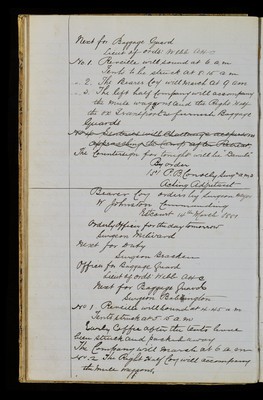 Next for Baggage Guard
Lieut of ords Webb AHC
No. 1. Reveille will sound at 6 a m
Tents to be struck at 5.15 a m
" 2. The Bearer Coy will march at 7 am
" 3. The left half Company will accompany
the mule waggons and the Right Half
the ox Transport & furnish Baggage
Guards
The Countersign for tonight will be
By order
Acting Adjutant
Bearer Coy orders by Surgeon Major
W Johnston Commanding
14th March 1881
Orderly Officer for the day tomorrow
Surgeon
Next for Duty
Surgeon
Officer for Baggage Guard
Lieut of ords Webb AHC
Next for Baggage Guard
Surgeon Babington
No 1 Reveille will sound at 4.45 a m
Tents struck at 5 a.m
Early Coffee after the tents have
been struck and packed away
The Company will march at 6 a m
No. 2 The Right Half Coy will accompany
the mule waggons,